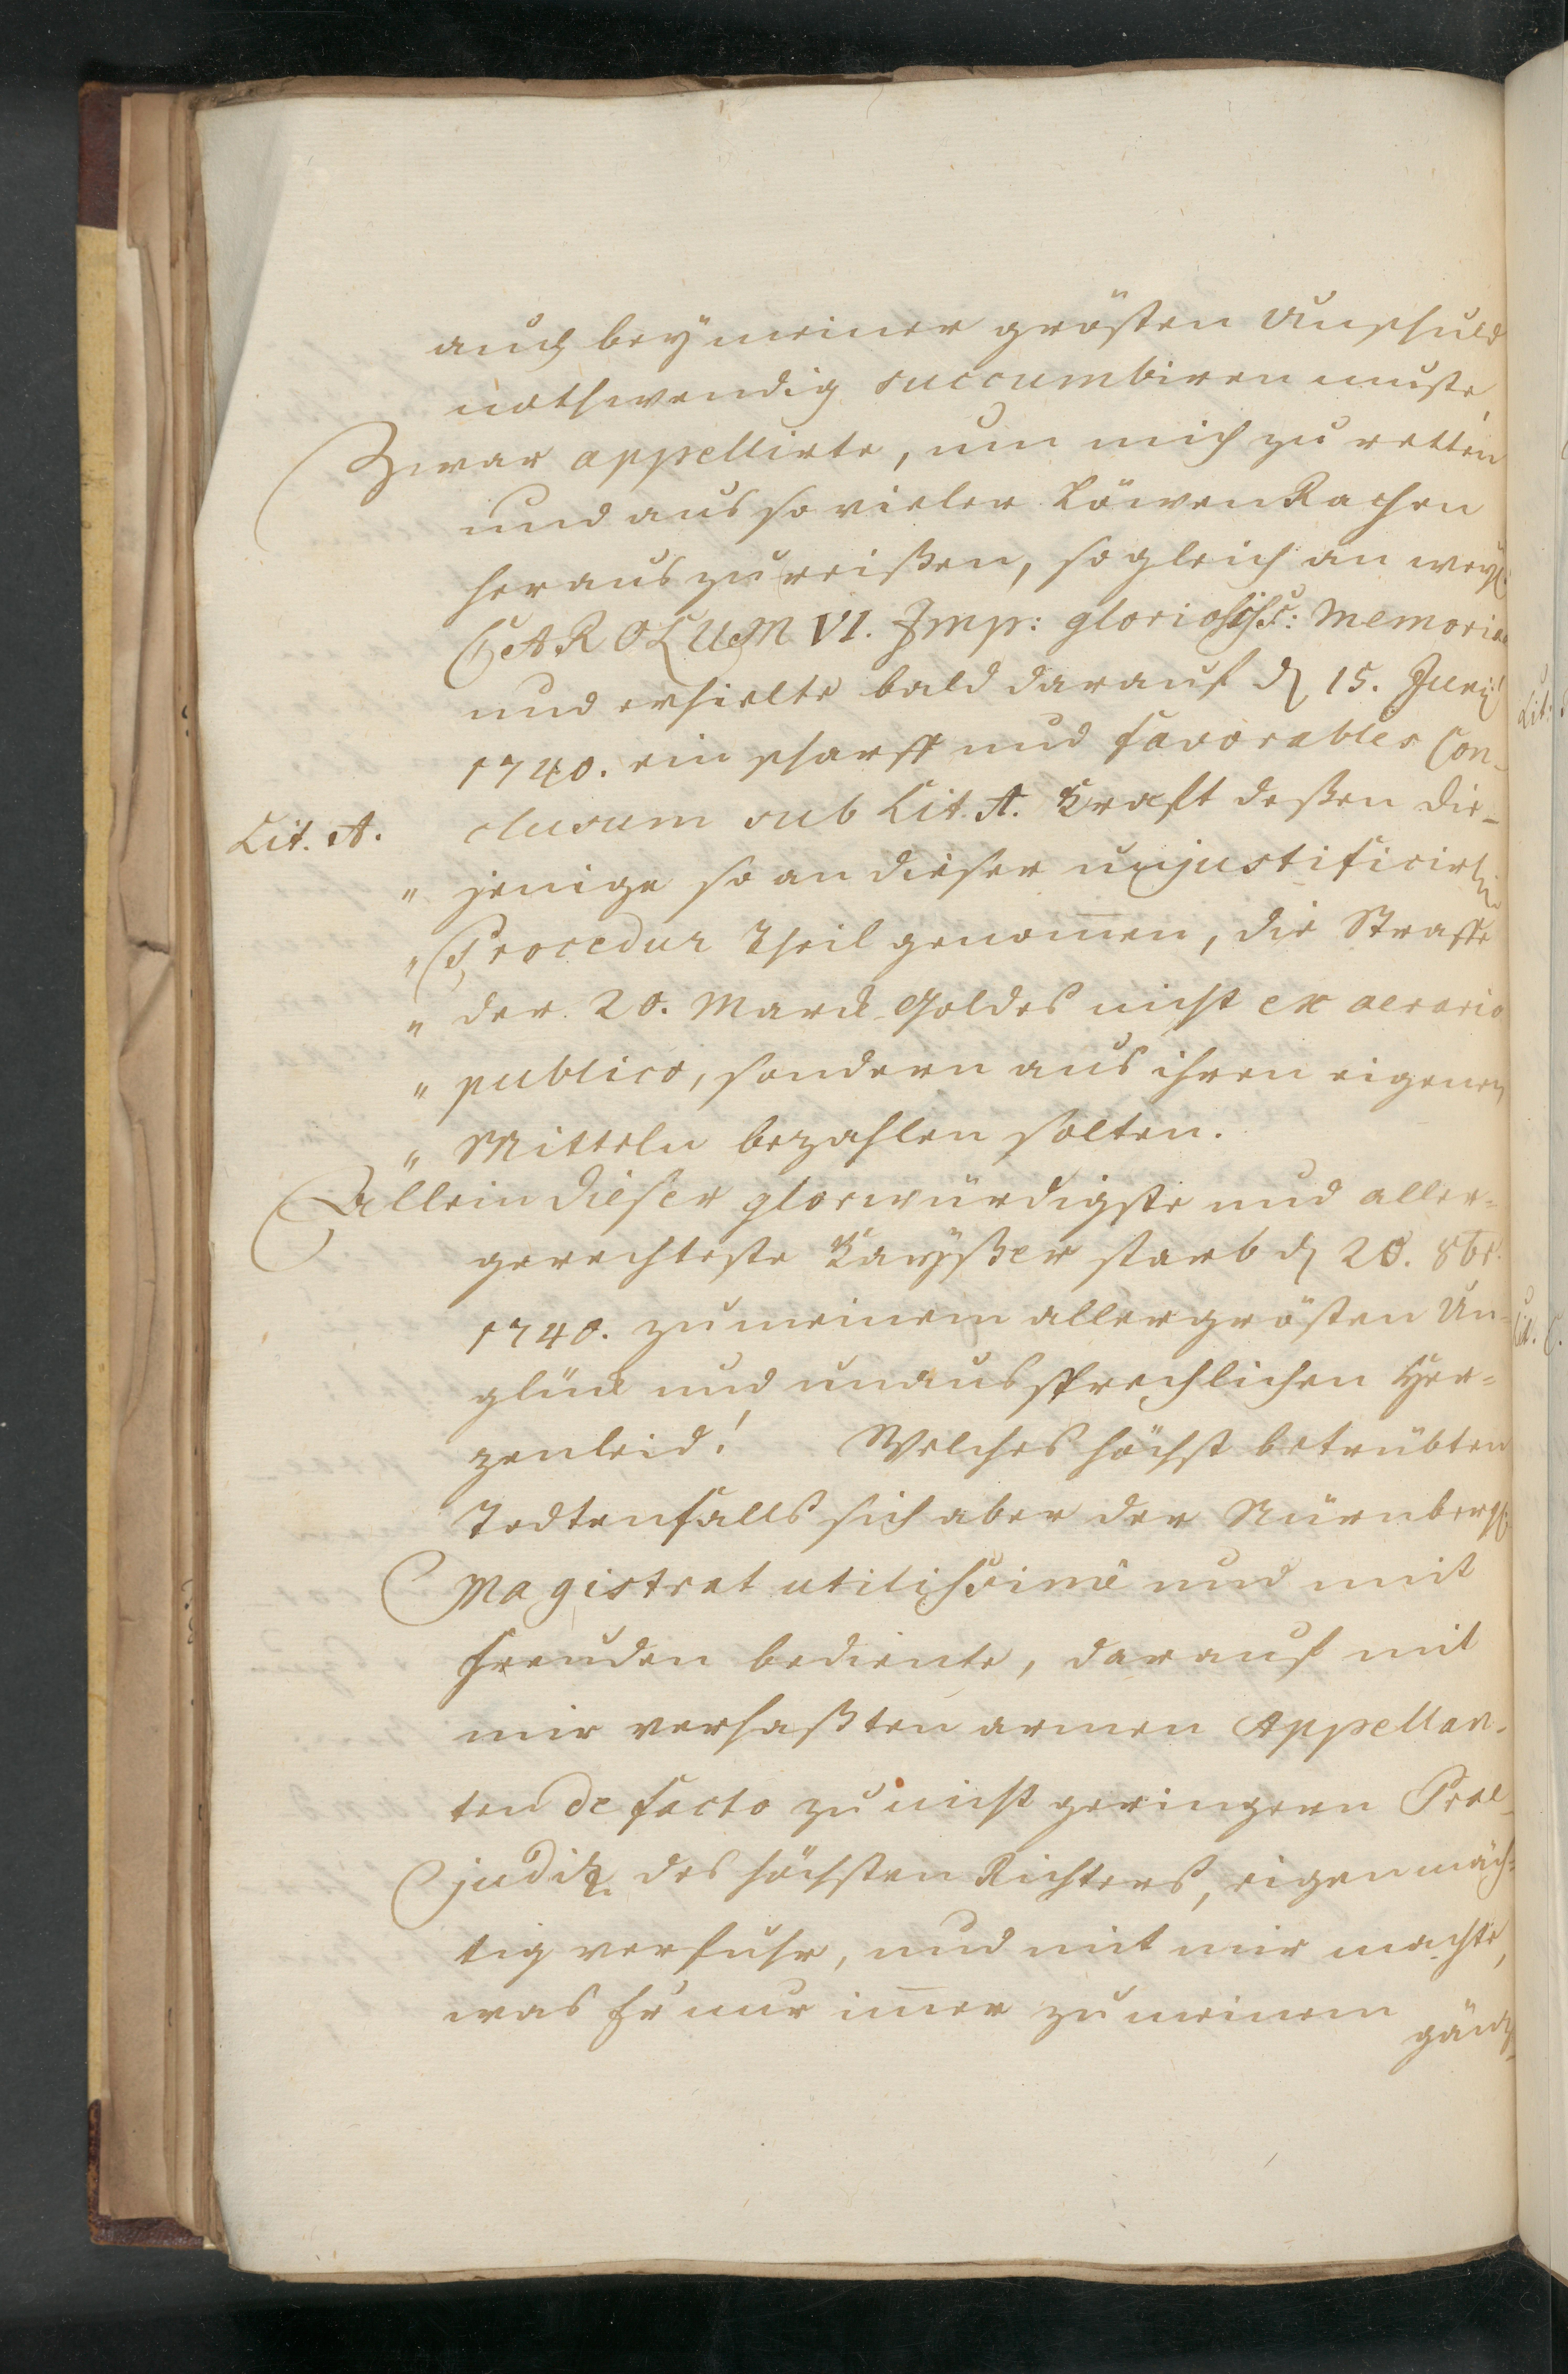 auch bey meiner grösten Unschuld
nothwendig succumbiren muste,
Zwar appellirte, um mich zu retten
und aus so vieler Löwen Rachen
heraus zu reißen, sogleich an weyl.
CAROLUM VI. Imp: gloriosiss: Memoriae
und erhielte bald darauf d. 15. Junij
1740. ein scharff und favorables Con-
Lit. A. clusum sub Lit. A. Krafft deßen die-
" jenige so an dieser unjustificirl.
" Procedur Theil genom̄en, die Straffe
" der 20. Marck Goldes nicht ex aerario
" publico, sondern aus ihren eigenen
" Mitteln bezahlen solten.
Allein dieser glorwürdigste und aller-
gerechteste Kayßer starb d. 20. 8br.
1740. zu meinem allergrösten Un-
glück und unaussprechlichen Her-
zenleid! Welches höchst betrübten
Todtenfalls sich aber der Nürnbergl.
Magistrat utilissimè und mit
Freuden bediente, darauf mit
mir verhaßten armen Appellan-
ten de facto zu nicht geringern Prae-
judiz des höchsten Richters, eigenmäch-
tig verfuhr, und mit mir machte,
was Er nur im̄er zu meinem
gäntz-
Lit.
Lit. C.